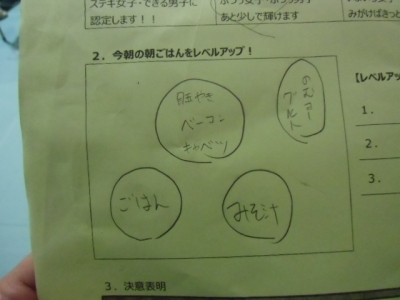 ステキ女子・できる男子に
認定します！！
あと少しで輝けます
みがけばきっと
2．今朝の朝ごはんをレベルアップ！
のむヨー
グルト
目玉やき
ベーコン
キャベツ
【レベルアッ
1．
2．
3．
ごはん
みそ汁
3．決意表明